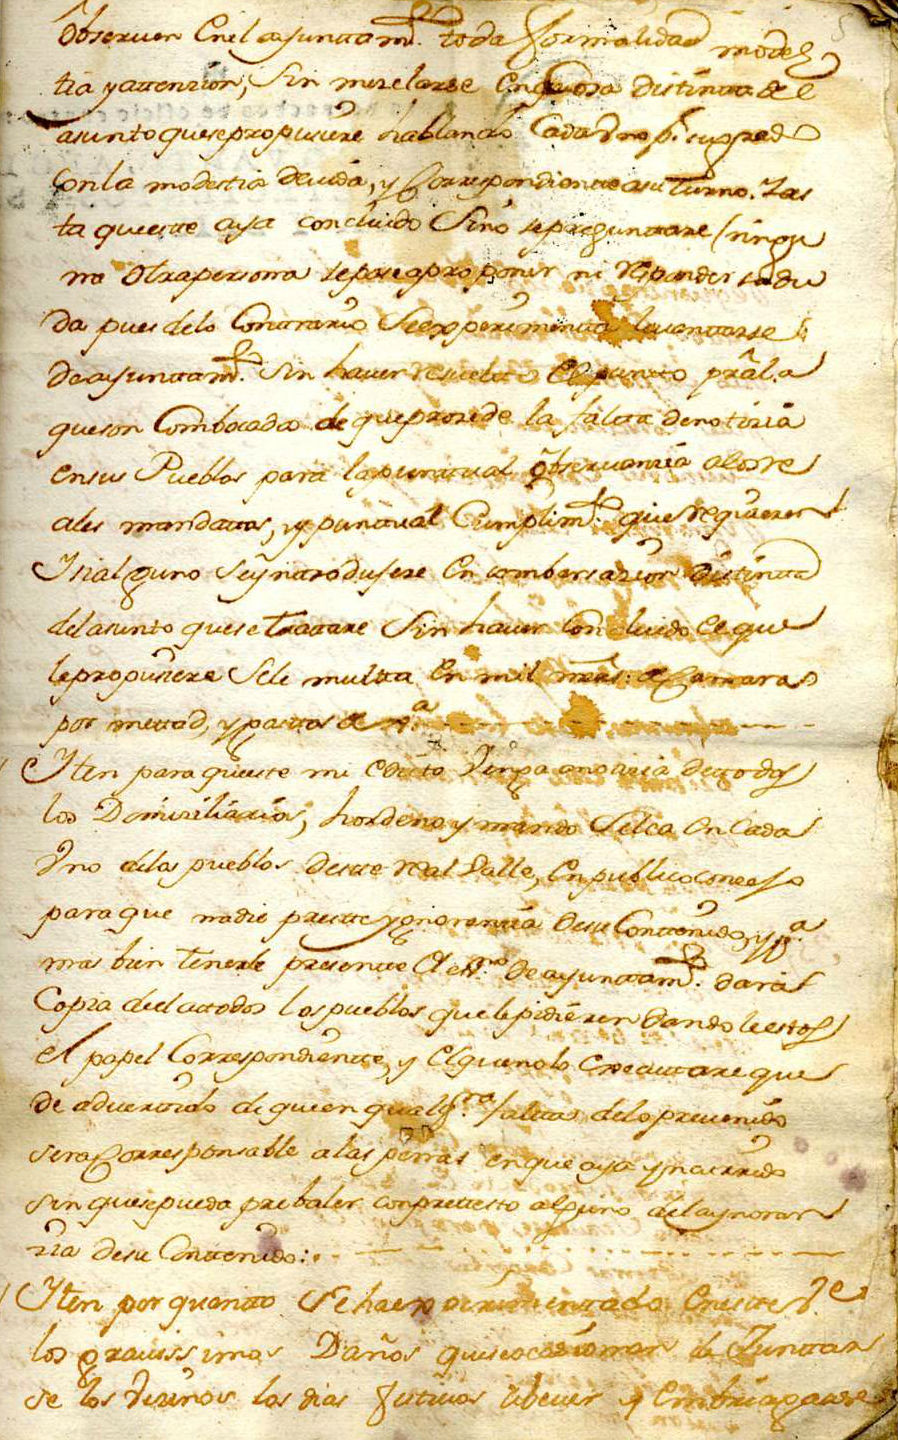 Observen en el ayunttamto. toda formalidad modes
tia y attenzion, sin mezclarse en cosa distintta de el
asunto que se propusiere hablando Cada Vno pr. su grado
con la modestia devida, y Correspondiente a su Turno. Has
ta que este aya concluido Sino se preguntare ningu
na otra persona se propponer ni responder sadu
da pues delo Conttrario Se experimentta levanttarse
de ayunttamto. sin haver resuelto el puntto pral. a
que son Combocados de que prozede la faltta de notizia
en sus Pueblos para la puntual observanzia alos Re
ales mandattos, y puntual Cumplimto. que requieren
Y si alguno se yntrodusere en combersazion distintta
del asunto que se Trattare sin haver Concluido el que
le propusiere Se le multta en mil mrs: de Camara
por mettad, y gasttos de Ra.
Ytten para que este mi edicto venga a notizia de ttodos
los Domiziliarios, hordeno y mando Se lea en Cada
Vno de los pueblos deste real Valle, en publico conzejo
para que nadie prestte ygnoranzia de su Conttenido, y pa.
mas bien Tenerle presentte el essno. de ayunttamto. dara
Copia de el a ttodos los pueblos que le pidieren dandole estos
el papel Correspondientte, y el que no lo executtare que
de adverttido de que en qualqra. faltta delo prevenido
sera Corresponsable a las penas en que aya yncurrido
sin que se pueda prebaler con prettesto alguno dela ynoran
zia de su Conttenido:
Ytten por quantto Se ha experimentado en este Ve.
los gravissimos Daños que se ocasionan de Junttar
se los Vezinos los dias festivos a bever y embriagarse